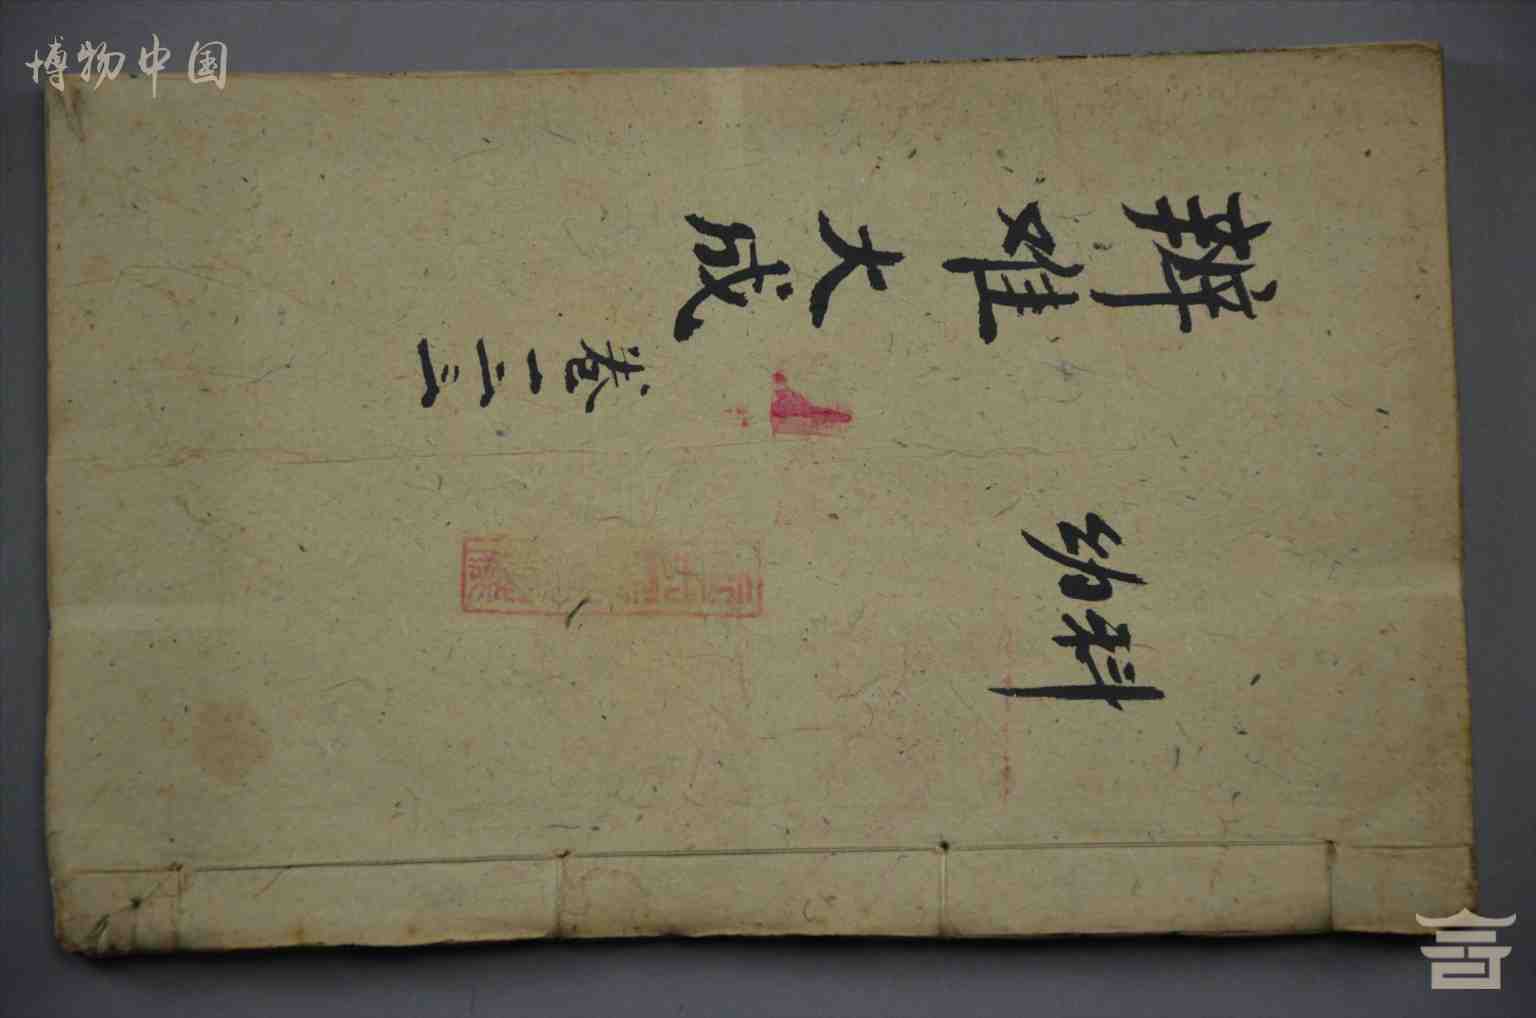 博物中国
辨难大成
卷一二三
幼科